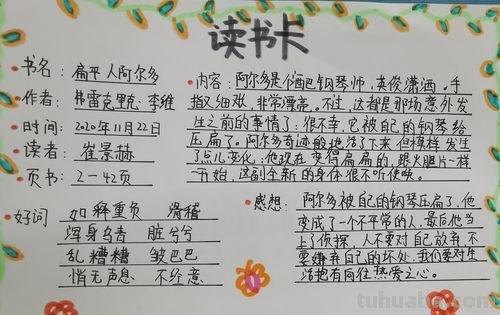 读书卡
书名：扁平人阿尔多
作者：弗雷克里克·李维
时间：2020年11月22日
读者：崔景赫
页书：2-42页
好词 如释重负 滑稽
浑身乌青 脏兮兮
乱糟糟 皱巴巴
悄无声息 不经意
内容：阿尔多是个酒吧钢琴师，英俊潇洒。手
指又细又长，非常漂亮。不过，这都是那场意外发
生之前的事情了：很不幸，它被自己的钢琴给
压扁了。阿尔多奇迹般地活了下来但模样发生
了点儿变化：他现在变得扁扁的，跟火腿片一样
一开始，这副全新的身体很不听使唤。
感想：阿尔多被自己的钢琴压扁了，他
变成了一个不平常的人，最后他当
上了侦探，人不要对自己放弃，不
要嫌弃自己的坏处，我们要对生
活抱有向往热爱之心。
tuhuabao.com